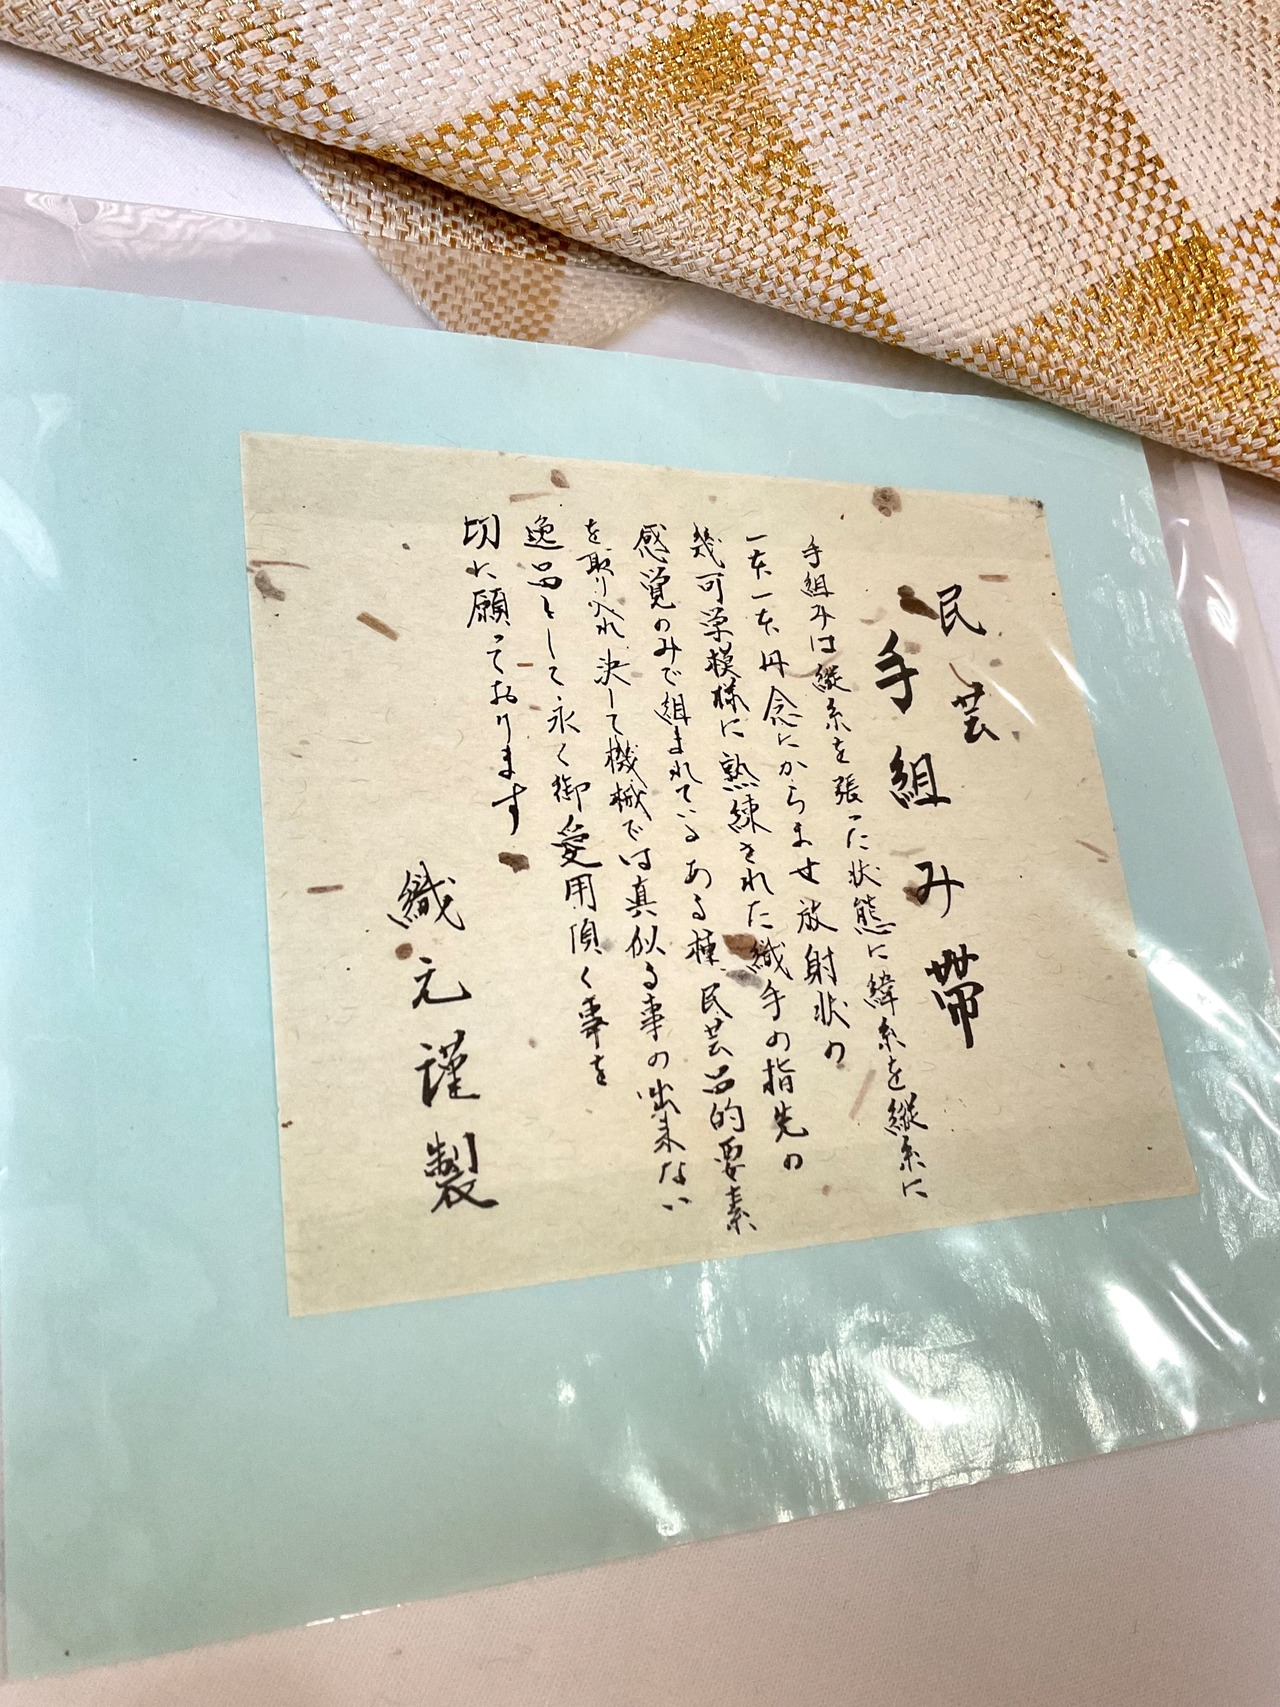 民芸
手組み帯
手組みは縦糸を張った状態に緯糸を縦糸に
一本一本丹念にからませ放射状の
幾可学模様に熟練された織手の指先の
感覚のみで組まれているある種民芸品的要素
を取り入れ決して機械では真似る事の出来ない
逸品として永く御愛用頂く事を
切に願っております
織元謹製